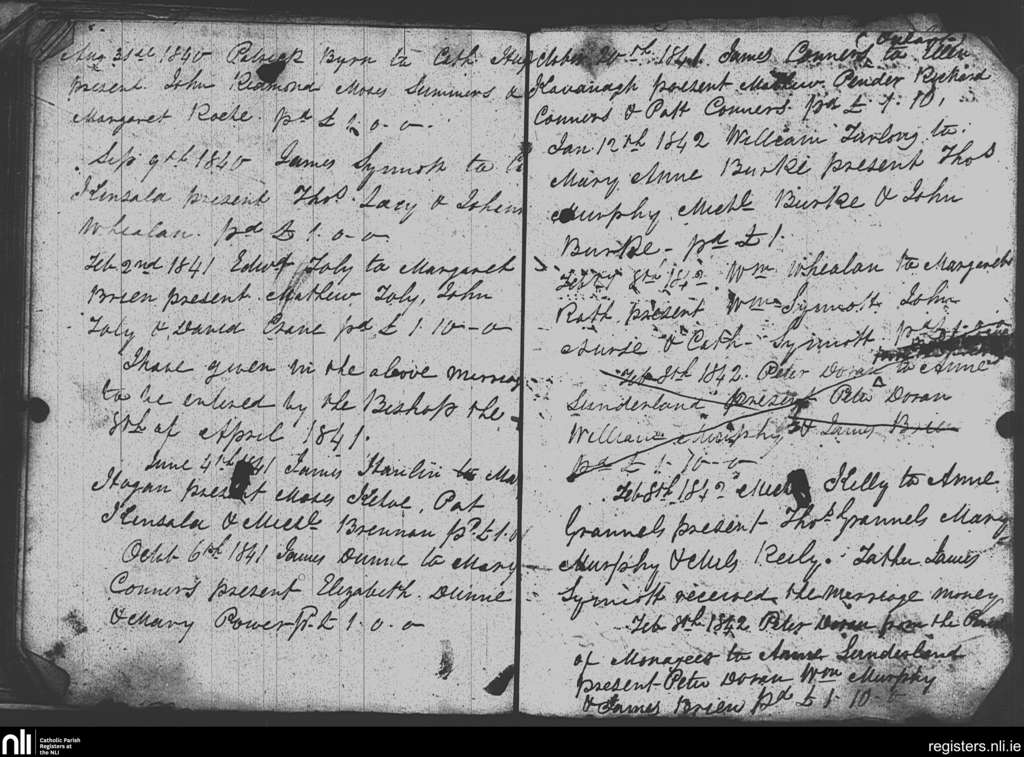 Aug 31st 1840 Patrick Byrn to Cath
present John Redmond Moses Summers &
Margaret Roche. pd £ 1. 0-0-
Sep 9th 1840 James Synnott to
Kinsala present Thos. Lacy & Johin
Whealan. pd £ 1-0-0
Feb 2nd 1841 Edwd Foly to Margaret
Brien present Mathew Foly, John
Foly & David Crane pd £ 1-10-0
I have given in the above
to be entered by the Bishop the
8th of April 1841.
June 4th 1841 James Hanlin to
Hogan present Moses Kehoe, Pat
Kinsala & Michl Brennan pd £ 1.
Octob 6th 1841 James Dunne to Mary
Connors present Elizabeth Dunne
& Mary Power pd £ 1-0-0
October 20th 1841 James Connors to Ellen
Kavanagh present Mathew Pender Richard
Connors & Patt Connors pd £ 1. 10,
Jan. 12th 1842 William Furlong to
Mary Anne Burke present Thos
Murphy Michl Burke & John
Burke - pd £ 1.
8th 1842 Wm Whealan to Margaret
Rath present Wm Synnott John
Nurse & Cath. Synnott
Feb 8th 1842. Peter Doran to Anne
Sunderland present Peter Doran
William Murphy & James Brien
pd £ 1-10-0
Feb 8th 1842 Kelly to Anne
Grannels present Thos Grannels Mary
Murphy & Mils Keily. Father James
Synnott received the Marriage money
Feb 8th 1842 Peter Doran from the
of Monagees to Anne Sunderland
present Peter Doran Wm Murphy
& James Brien pd £ 1. 10
nli
Catholic Parish
Registers at
the NLI
registers.nli.ie